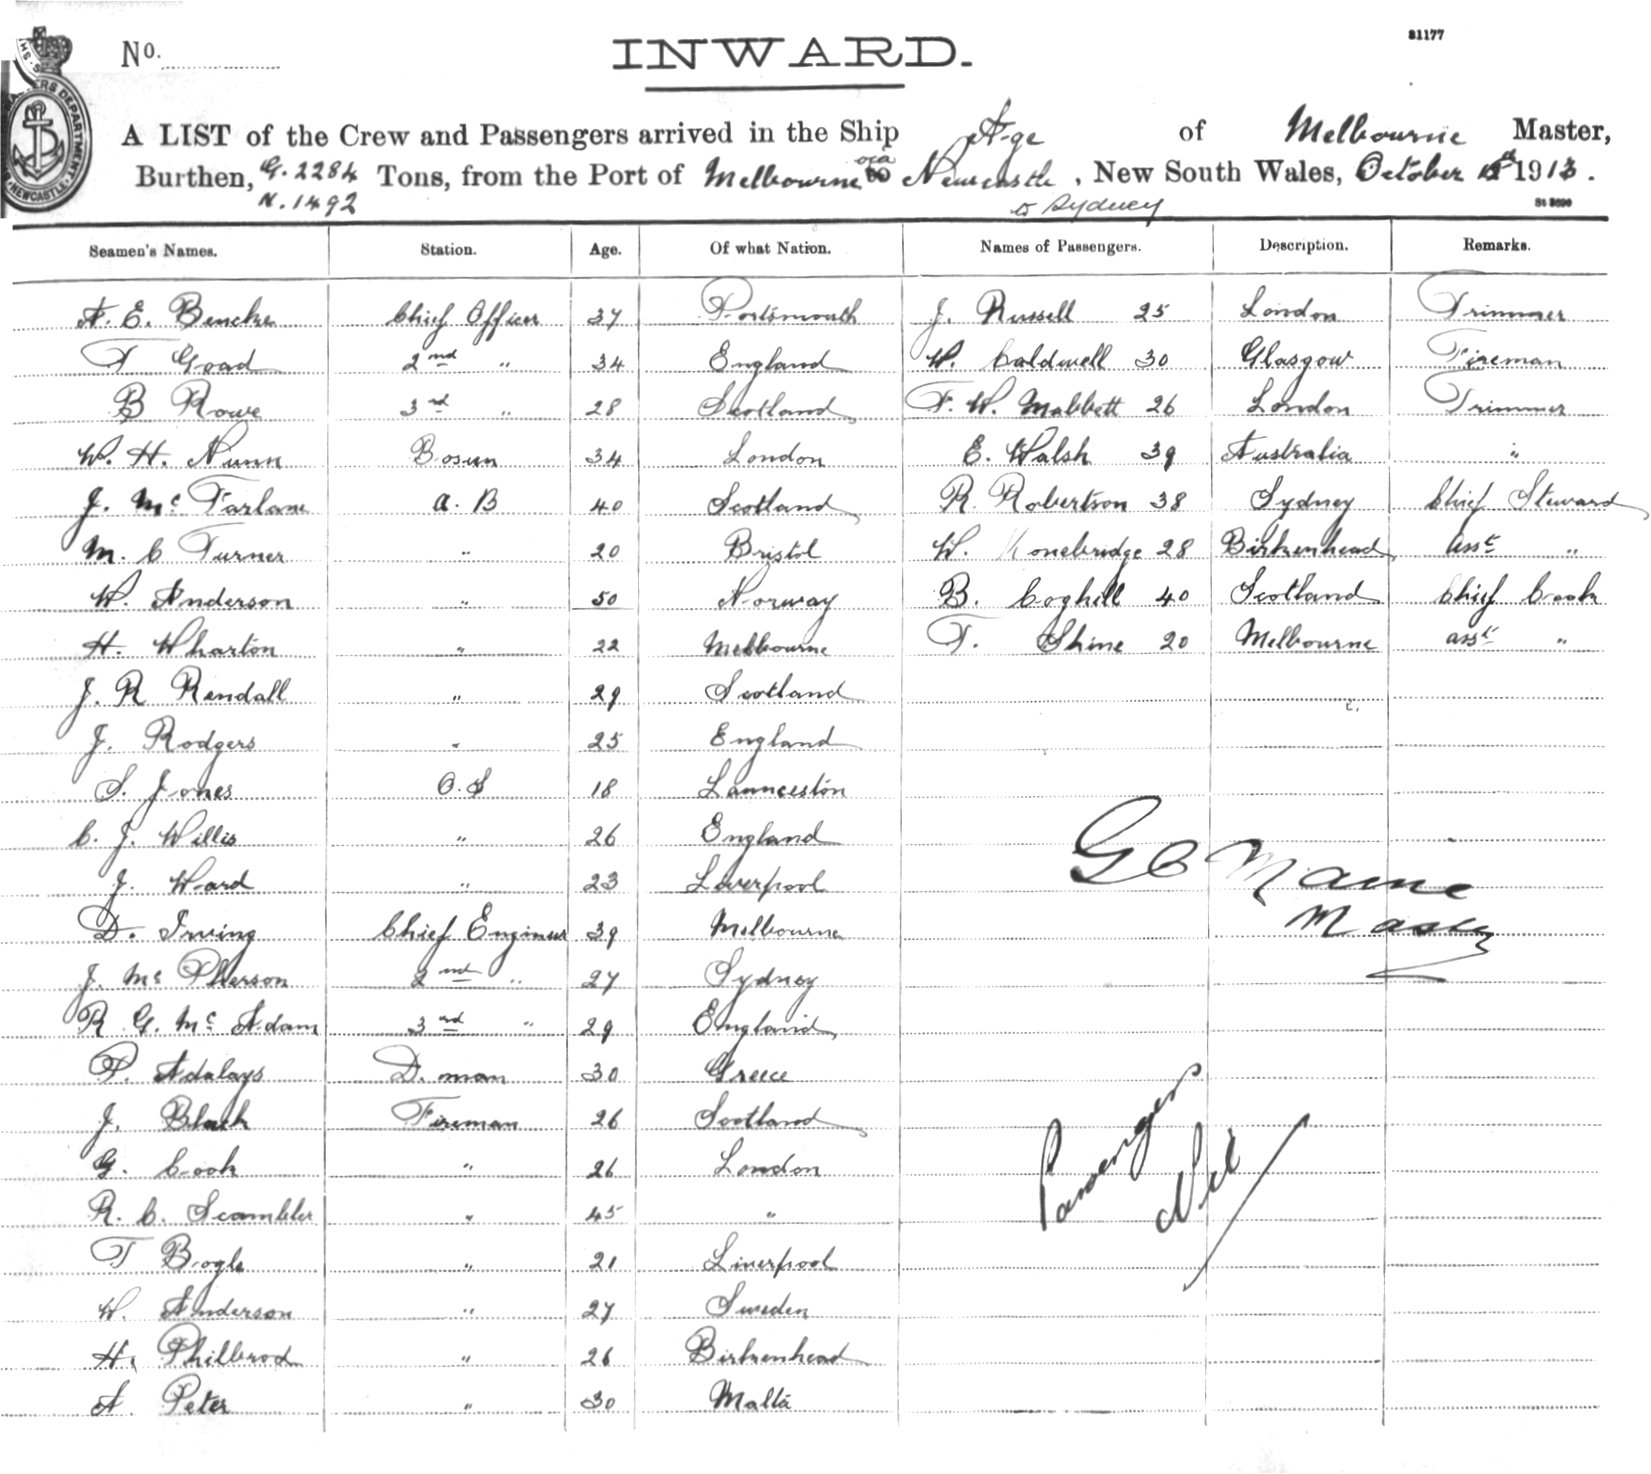 No.
INWARD.
81177
A LIST of the Crew and Passengers arrived in the Ship A-ge of Melbourne Master,
Burthen, G. 2284 Tons, from the Port of Melbourne via Newcastle, New South Wales, October 1913.
N. 1492 to Sydney
Seamen's Names. Station. Age. Of what Nation. Names of Passengers. Description. Remarks.
A. E. Bencke Chief Officer 37 Portsmouth J. Russell 25 London Trimmer
T Goad 2nd " 34 England W. Caldwell 30 Glasgow Fireman
B Rowe 3rd " 28 Scotland F. W. Mabbett 26 London Trimmer
W. H. Nunn Bosun 34 London E. Walsh 39 Australia "
J. Mc Farlane A. B 40 Scotland R. Robertson 38 Sydney Chief Steward
M. C Turner " 20 Bristol W. 28 Birkenhead Asst "
W. Anderson " 50 Norway B. Coghill 40 Scotland Chief Cook
H. Wharton " 22 Melbourne T. Shine 20 Melbourne asst "
J. R Rendall " 29 Scotland
J. Rodgers " 25 England
S. Jones O.S 18 Launceston
C. J. Willis " 26 England
J. Ward " 23 Liverpool
G C Maine
Master
D. Irving Chief Engineer 39 Melbourne
J. Mc Pherson 2nd " 27 Sydney
R G. Mc Adam 3rd " 29 England
P. Adalays D. man 30 Greece
J. Black Fireman 26 Scotland
G. Cook " 26 London
Passengers
Nil
R. C. Scambler " 45 "
T Bogle " 21 Liverpool
W. Anderson " 27 Sweden
H. Philbrod " 26 Birkenhead
A. Peter " 30 Malta